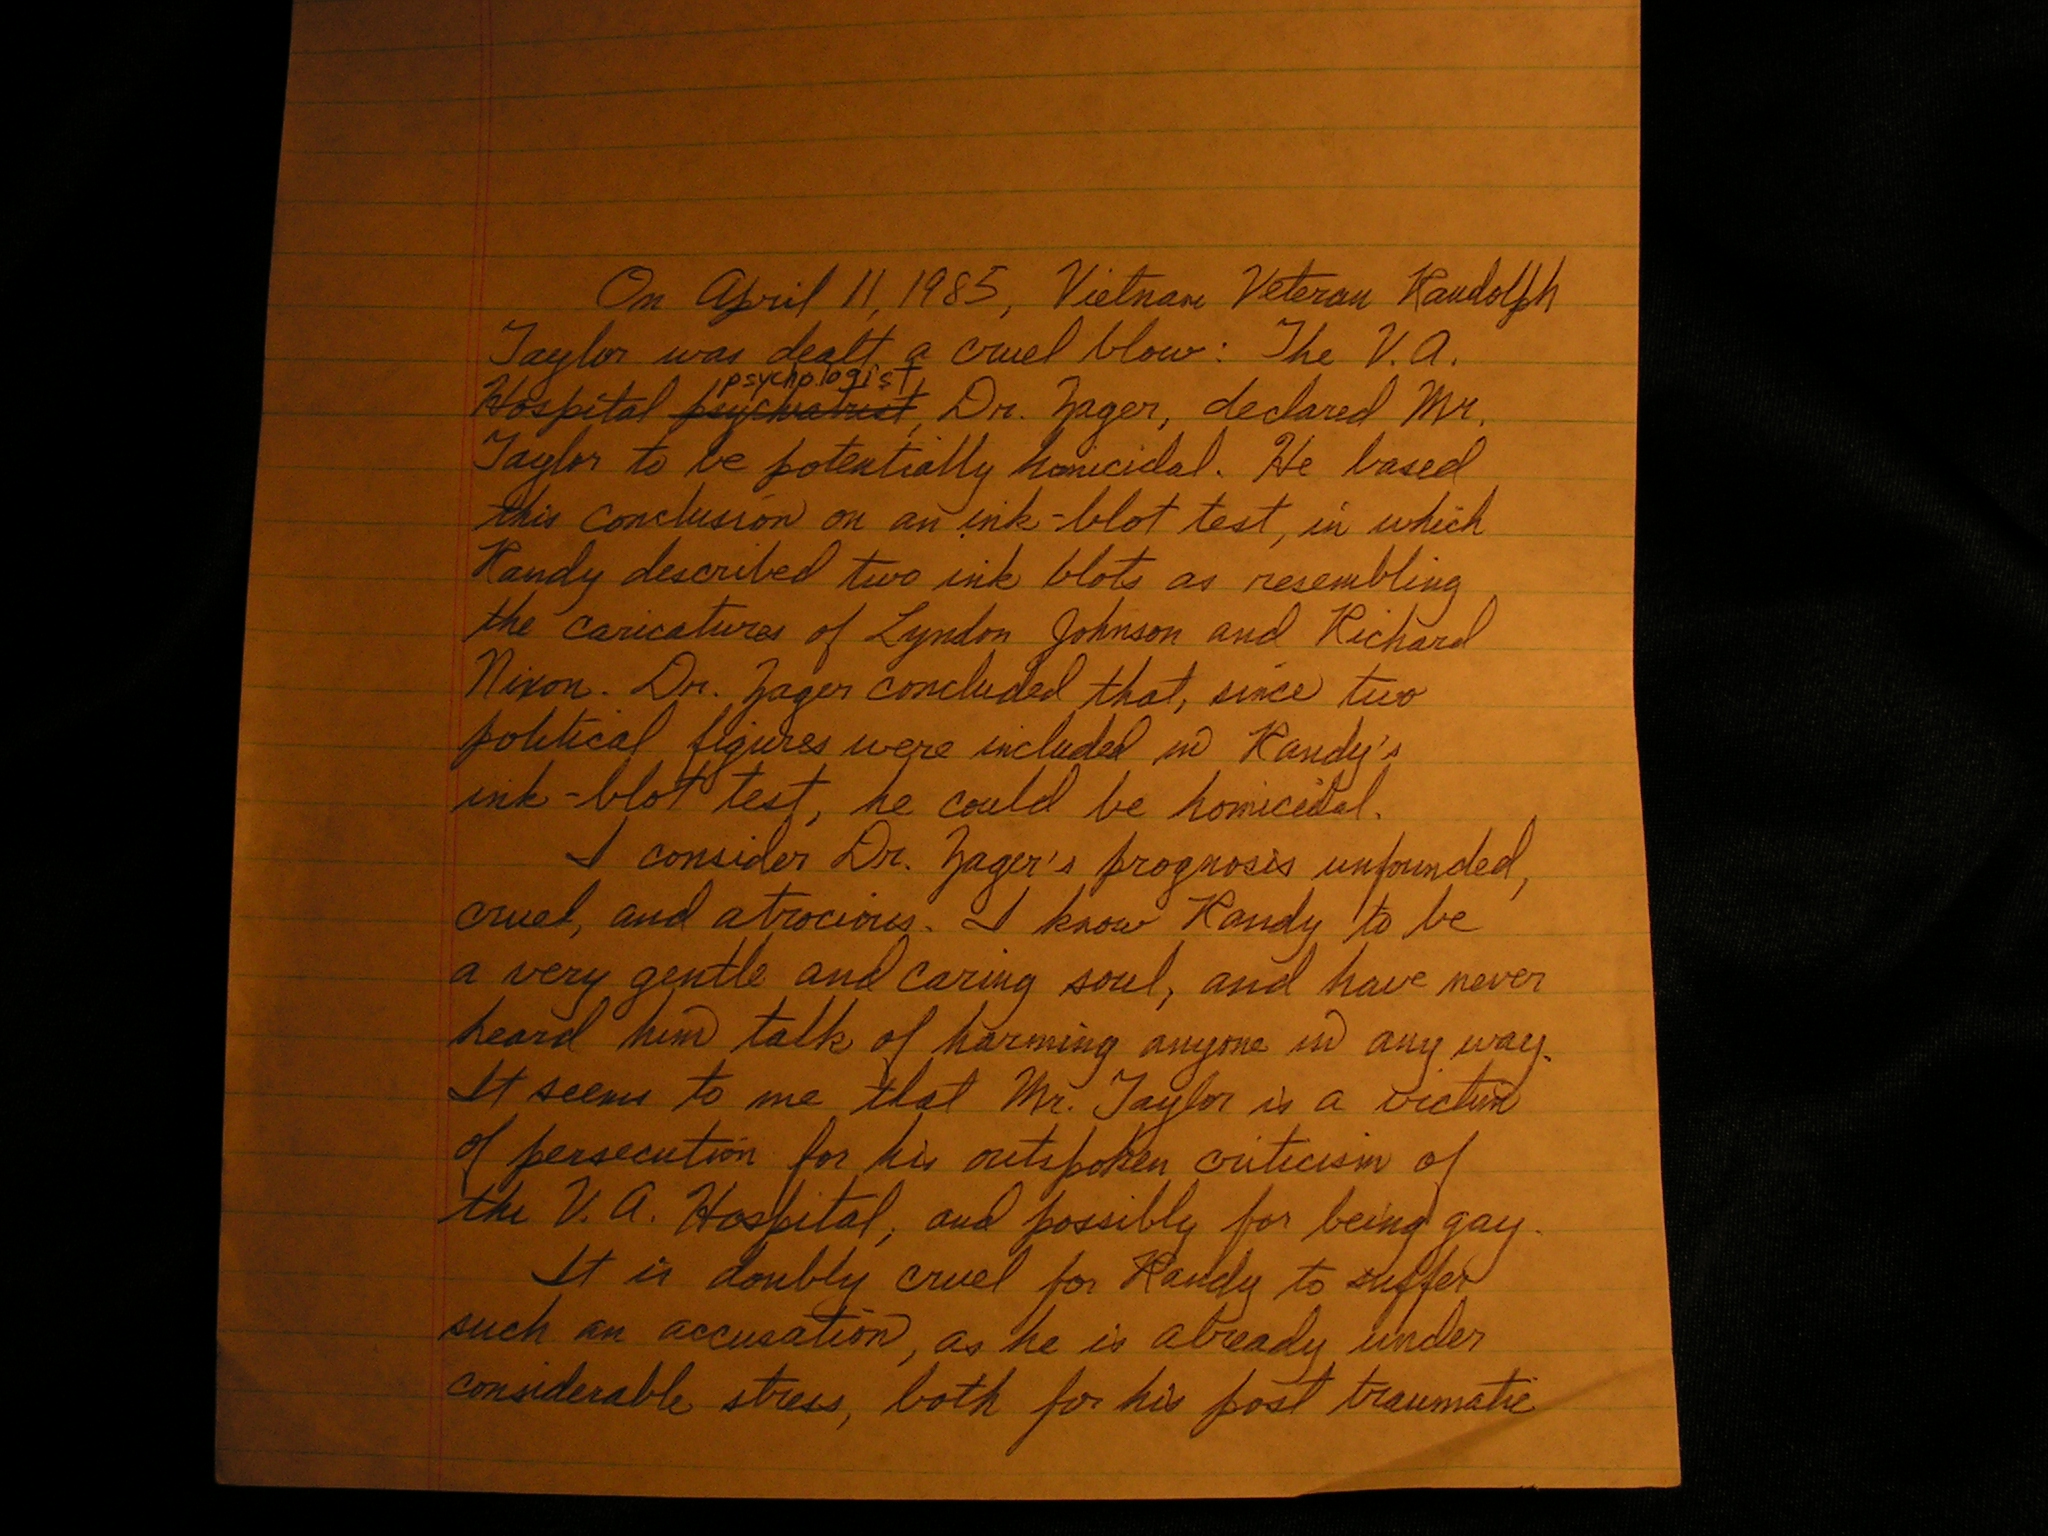 On April 11, 1985, Vietnam Veteran Randolph
Taylor was dealt a cruel blow: The V.A.
psychologist
Hospital psychiatrist, Dr. Zager, declared Mr.
Taylor to be potentially homicidal. He based
this conclusion on an ink-blot test, in which
Randy described two ink blots as resembling
the caricatures of Lyndon Johnson and Richard
Nixon. Dr. Zager concluded that, since two
political figures were included in Randy's
ink-blot test, he could be homicidal.
I consider Dr. Zager's prognosis unfounded,
cruel, and atrocious. I know Randy to be
a very gentle and caring soul, and have never
heard him talk of harming anyone in any way.
It seems to me that Mr. Taylor is a victim
of persecution for his outspoken criticism of
the V.A. Hospital, and possibly for being gay.
It is doubly cruel for Randy to suffer
such an accusation, as he is already under
considerable stress, both for his post traumatic